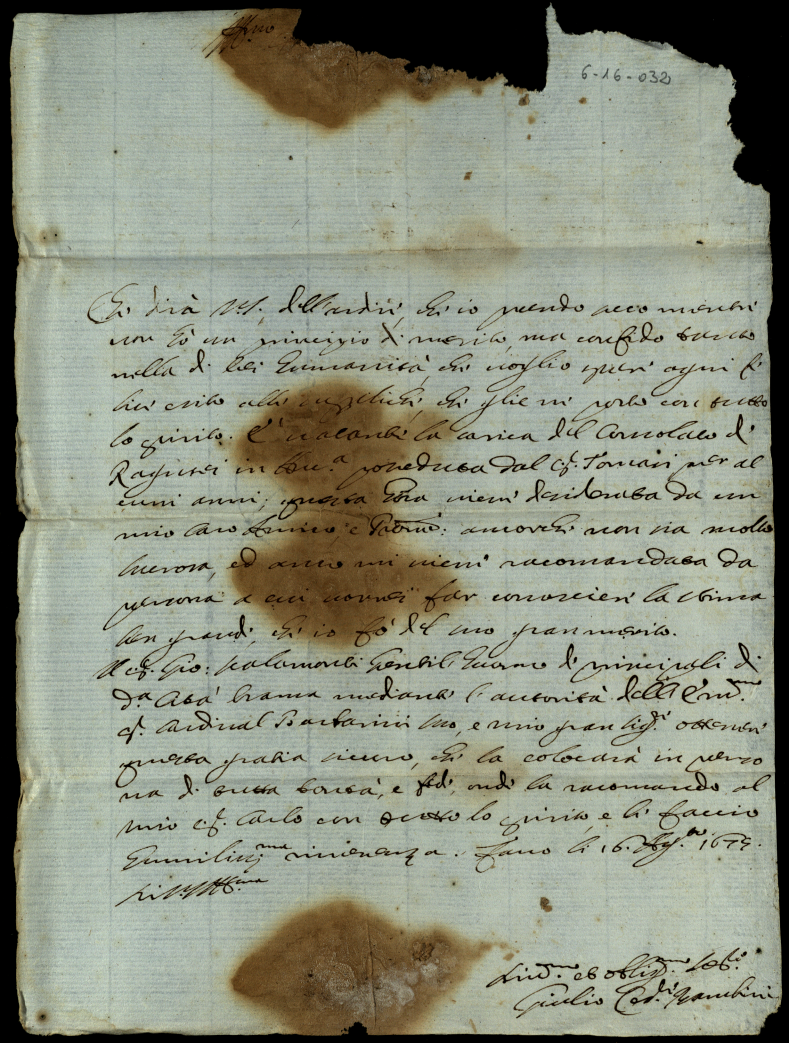 Ill.mo
6-16-032
Che dirà V.S. dell'ardir, che io prendo seco mentre
non hò un principio di merito, ma confido tanto
nella di lei humanità, che voglio sperar ogni fe
lice esito alle suppliche, che glie ne porto con tutto
lo spirito. È vacante la carica del Consolato di
Ragusei in posseduta dal S. Tomasi per al
cuni anni; questa hora vien desiderata da un
mio caro Amico, e Prone: ancorche non sia molto
lucrosa, ed anco mi vien racomandata da
persona a cui vorrei far conoscere la stima
ben grande, che io fò del suo gran merito.
Il S. Gio: Scalamonti Gentil'huomo de principali di
d.a Città brama mediante l'autorità dell' Em.mo
S. Cardinal Barbarini suo, e mio gran Sig.re ottener
questa gratia sicuro, che la colocarà in perso
na di tutta bontà, e fede, onde la racomando al
mio S. Carlo con tutto lo spirito, e li faccio
humiliss.ma riverenza. Fano li 16. 1675.
Di V.S. Ill.ma
Dev.mo et oblig.mo Ser.re
Giulio Zambini